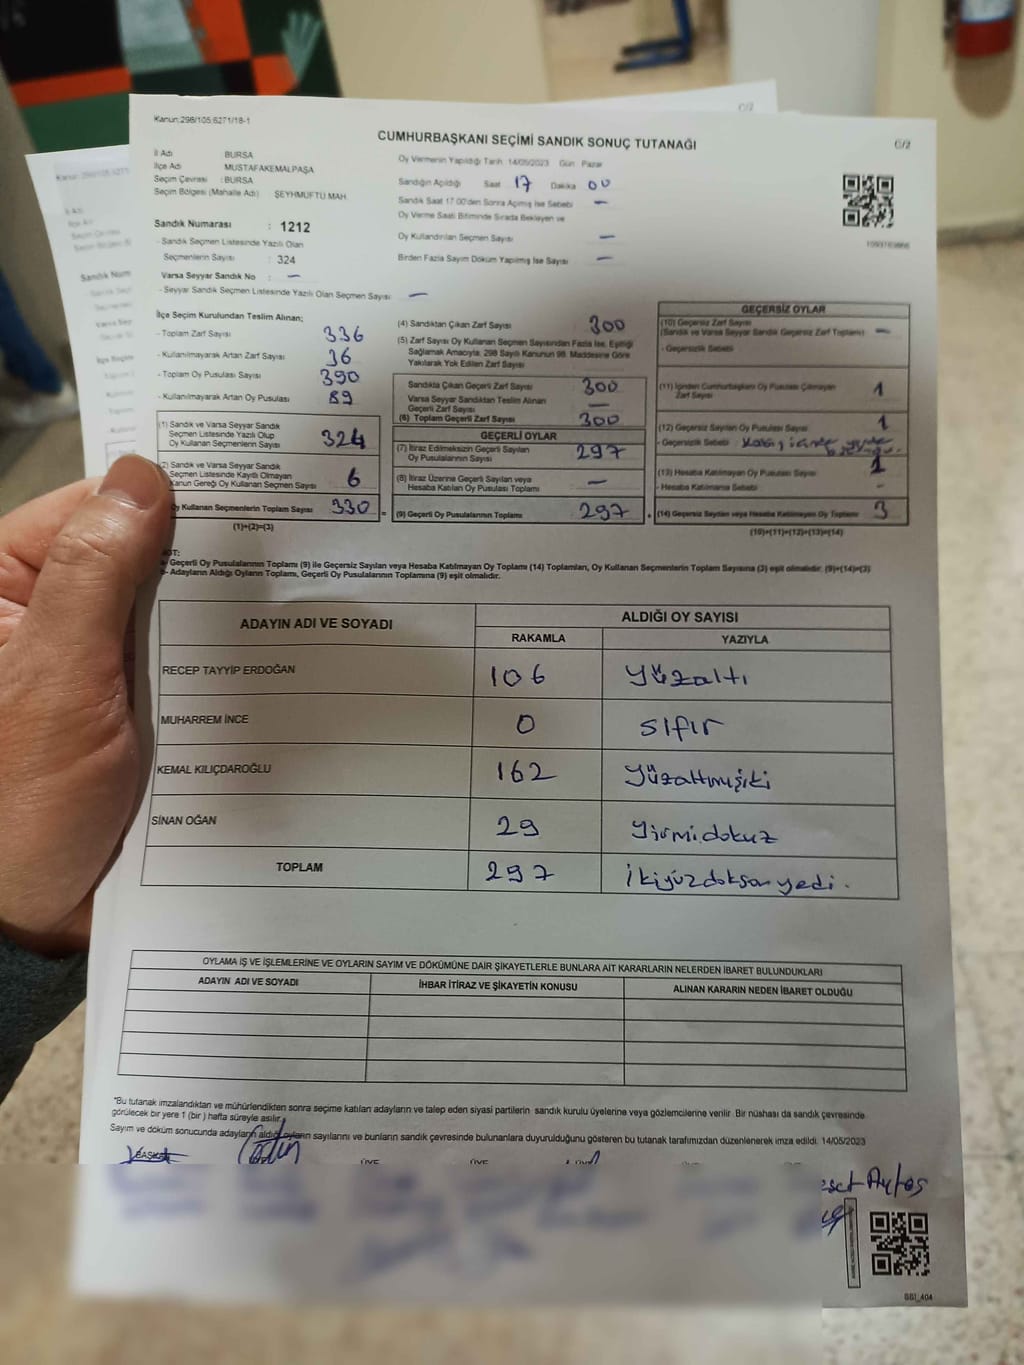 C/2
Kanun:298/105.6271/18-1
CUMHURBAŞKANI SEÇİMİ SANDIK SONUÇ TUTANAĞI
C/2
İl Adı BURSA
İlçe Adı MUSTAFAKEMALPAŞA
Seçim Çevresi : BURSA
Seçim Bölgesi (Mahalle Adı) ŞEYHMÜFTÜ MAH.
Sandık Numarası : 1212
- Sandık Seçmen Listesinde Yazılı Olan
Seçmenlerin Sayısı : 324
Varsa Seyyar Sandık No : —
- Seyyar Sandık Seçmen Listesinde Yazılı Olan Seçmen Sayısı —
Oy Vermenin Yapıldığı Tarih 14/05/2023 Gün Pazar
Sandığın Açıldığı Saat 17 Dakika 00
Sandık Saat 17.00'den Sonra Açılmış İse Sebebi —
Oy Verme Saati Bitiminde Sırada Bekleyen ve
Oy Kullandırılan Seçmen Sayısı —
Birden Fazla Sayım Döküm Yapılmış İse Sayısı —
İlçe Seçim Kurulundan Teslim Alınan;
- Toplam Zarf Sayısı 336
- Kullanılmayarak Artan Zarf Sayısı 36
- Toplam Oy Pusulası Sayısı 390
- Kullanılmayarak Artan Oy Pusulası 89
(1) Sandık ve Varsa Seyyar Sandık
Seçmen Listesinde Yazılı Olup
Oy Kullanan Seçmenlerin Sayısı 324
(2) Sandık ve Varsa Seyyar Sandık
Seçmen Listesinde Kayıtlı Olmayan
Kanun Gereği Oy Kullanan Seçmen Sayısı 6
Oy Kullanan Seçmenlerin Toplam Sayısı 330 =
(1)+(2)=(3)
(4) Sandıktan Çıkan Zarf Sayısı 300
(5) Zarf Sayısı Oy Kullanan Seçmen Sayısından Fazla İse, Eşitliği
Sağlamak Amacıyla, 298 Sayılı Kanunun 98. Maddesine Göre
Yakılarak Yok Edilen Zarf Sayısı
Sandıkta Çıkan Geçerli Zarf Sayısı 300
Varsa Seyyar Sandıktan Teslim Alınan
Geçerli Zarf Sayısı —
(6) Toplam Geçerli Zarf Sayısı 300
GEÇERLİ OYLAR
(7) İtiraz Edilmeksizin Geçerli Sayılan
Oy Pusulalarının Sayısı 297
(8) İtiraz Üzerine Geçerli Sayılan veya
Hesaba Katılan Oy Pusulası Toplamı —
(9) Geçerli Oy Pusulalarının Toplamı 297 +
GEÇERSİZ OYLAR
(10) Geçersiz Zarf Sayısı
(Sandık ve Varsa Seyyar Sandık Geçersiz Zarf Toplamı) —
- Geçersizlik Sebebi
(11) İçinden Cumhurbaşkanı Oy Pusulası Çıkmayan
Zarf Sayısı 1
(12) Geçersiz Sayılan Oy Pusulası Sayısı 1
- Geçersizlik Sebebi
(13) Hesaba Katılmayan Oy Pusulası Sayısı 1
- Hesaba Katılmama Sebebi -
(14) Geçersiz Sayılan veya Hesaba Katılmayan Oy Toplamı 3
(10)+(11)+(12)+(13)=(14)
NOT:
a- Geçerli Oy Pusulalarının Toplamı (9) ile Geçersiz Sayılan veya Hesaba Katılmayan Oy Toplamı (14) Toplamları, Oy Kullanan Seçmenlerin Toplam Sayısına (3) eşit olmalıdır. (9)+(14)=(3)
b- Adayların Aldığı Oyların Toplamı, Geçerli Oy Pusulalarının Toplamına (9) eşit olmalıdır.
ADAYIN ADI VE SOYADI
ALDIĞI OY SAYISI
RAKAMLA YAZIYLA
RECEP TAYYİP ERDOĞAN 106 Yüzaltı
MUHARREM İNCE 0 sıfır
KEMAL KILIÇDAROĞLU 162 Yüzaltmışiki
SİNAN OĞAN 29 Yirmidokuz
TOPLAM 297 ikiyüzdoksanyedi.
OYLAMA İŞ VE İŞLEMLERİNE VE OYLARIN SAYIM VE DÖKÜMÜNE DAİR ŞİKAYETLERLE BUNLARA AİT KARARLARIN NELERDEN İBARET BULUNDUKLARI
ADAYIN ADI VE SOYADI İHBAR İTİRAZ VE ŞİKAYETİN KONUSU ALINAN KARARIN NEDEN İBARET OLDUĞU
*Bu tutanak imzalandıktan ve mühürlendikten sonra seçime katılan adayların ve talep eden siyasi partilerin sandık kurulu üyelerine veya gözlemcilerine verilir. Bir nüshası da sandık çevresinde
görülecek bir yere 1 (bir ) hafta süreyle asılır.
Sayım ve döküm sonucunda adayların aldığı oyların sayılarını ve bunların sandık çevresinde bulunanlara duyurulduğunu gösteren bu tutanak tarafımızdan düzenlenerek imza edildi. 14/05/2023
BAŞKAN ÜYE ÜYE
SB1_404